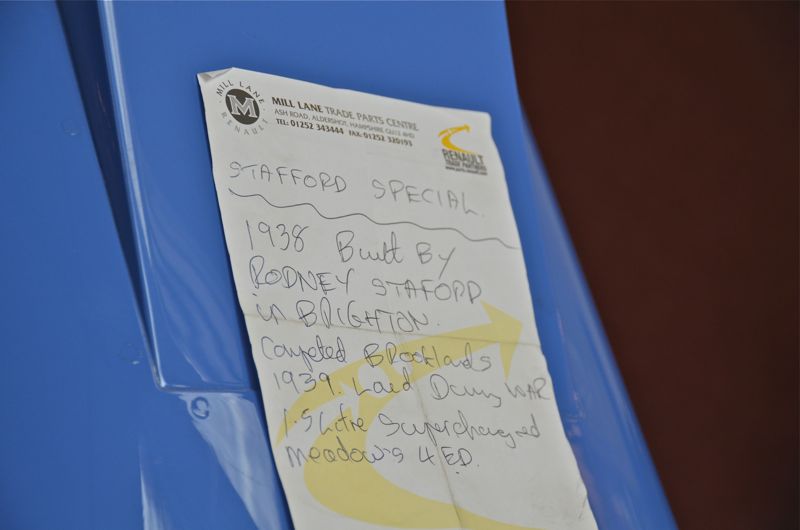 MILL LANE
M
RENAULT
MILL LANE TRADE PARTS CENTRE
ASH ROAD, ALDERSHOT, HAMPSHIRE GU12 4HD
TEL: 01252 343444 FAX: 01252 320193
RENAULT
TRADE PARTNERS
STAFFORD SPECIAL.
1938 Built By
RODNEY STAFORD
in BRIGHTON.
Competed BRooklands
1939. Laid During WAR
1.5 Litre Supercharged
meadows 4 E.D.